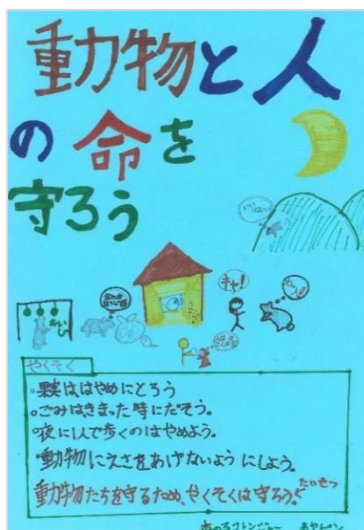 動物と人
の命を
守ろう
キャ!
やくそく
・果実は、はやめにとろう
・ごみはきまった時にだそう。
・夜に1人で歩くのはやめよう。
・動物にえさをあげないようにしよう。
たいせつ
動物たちを守るため、やくそくは守ろう!